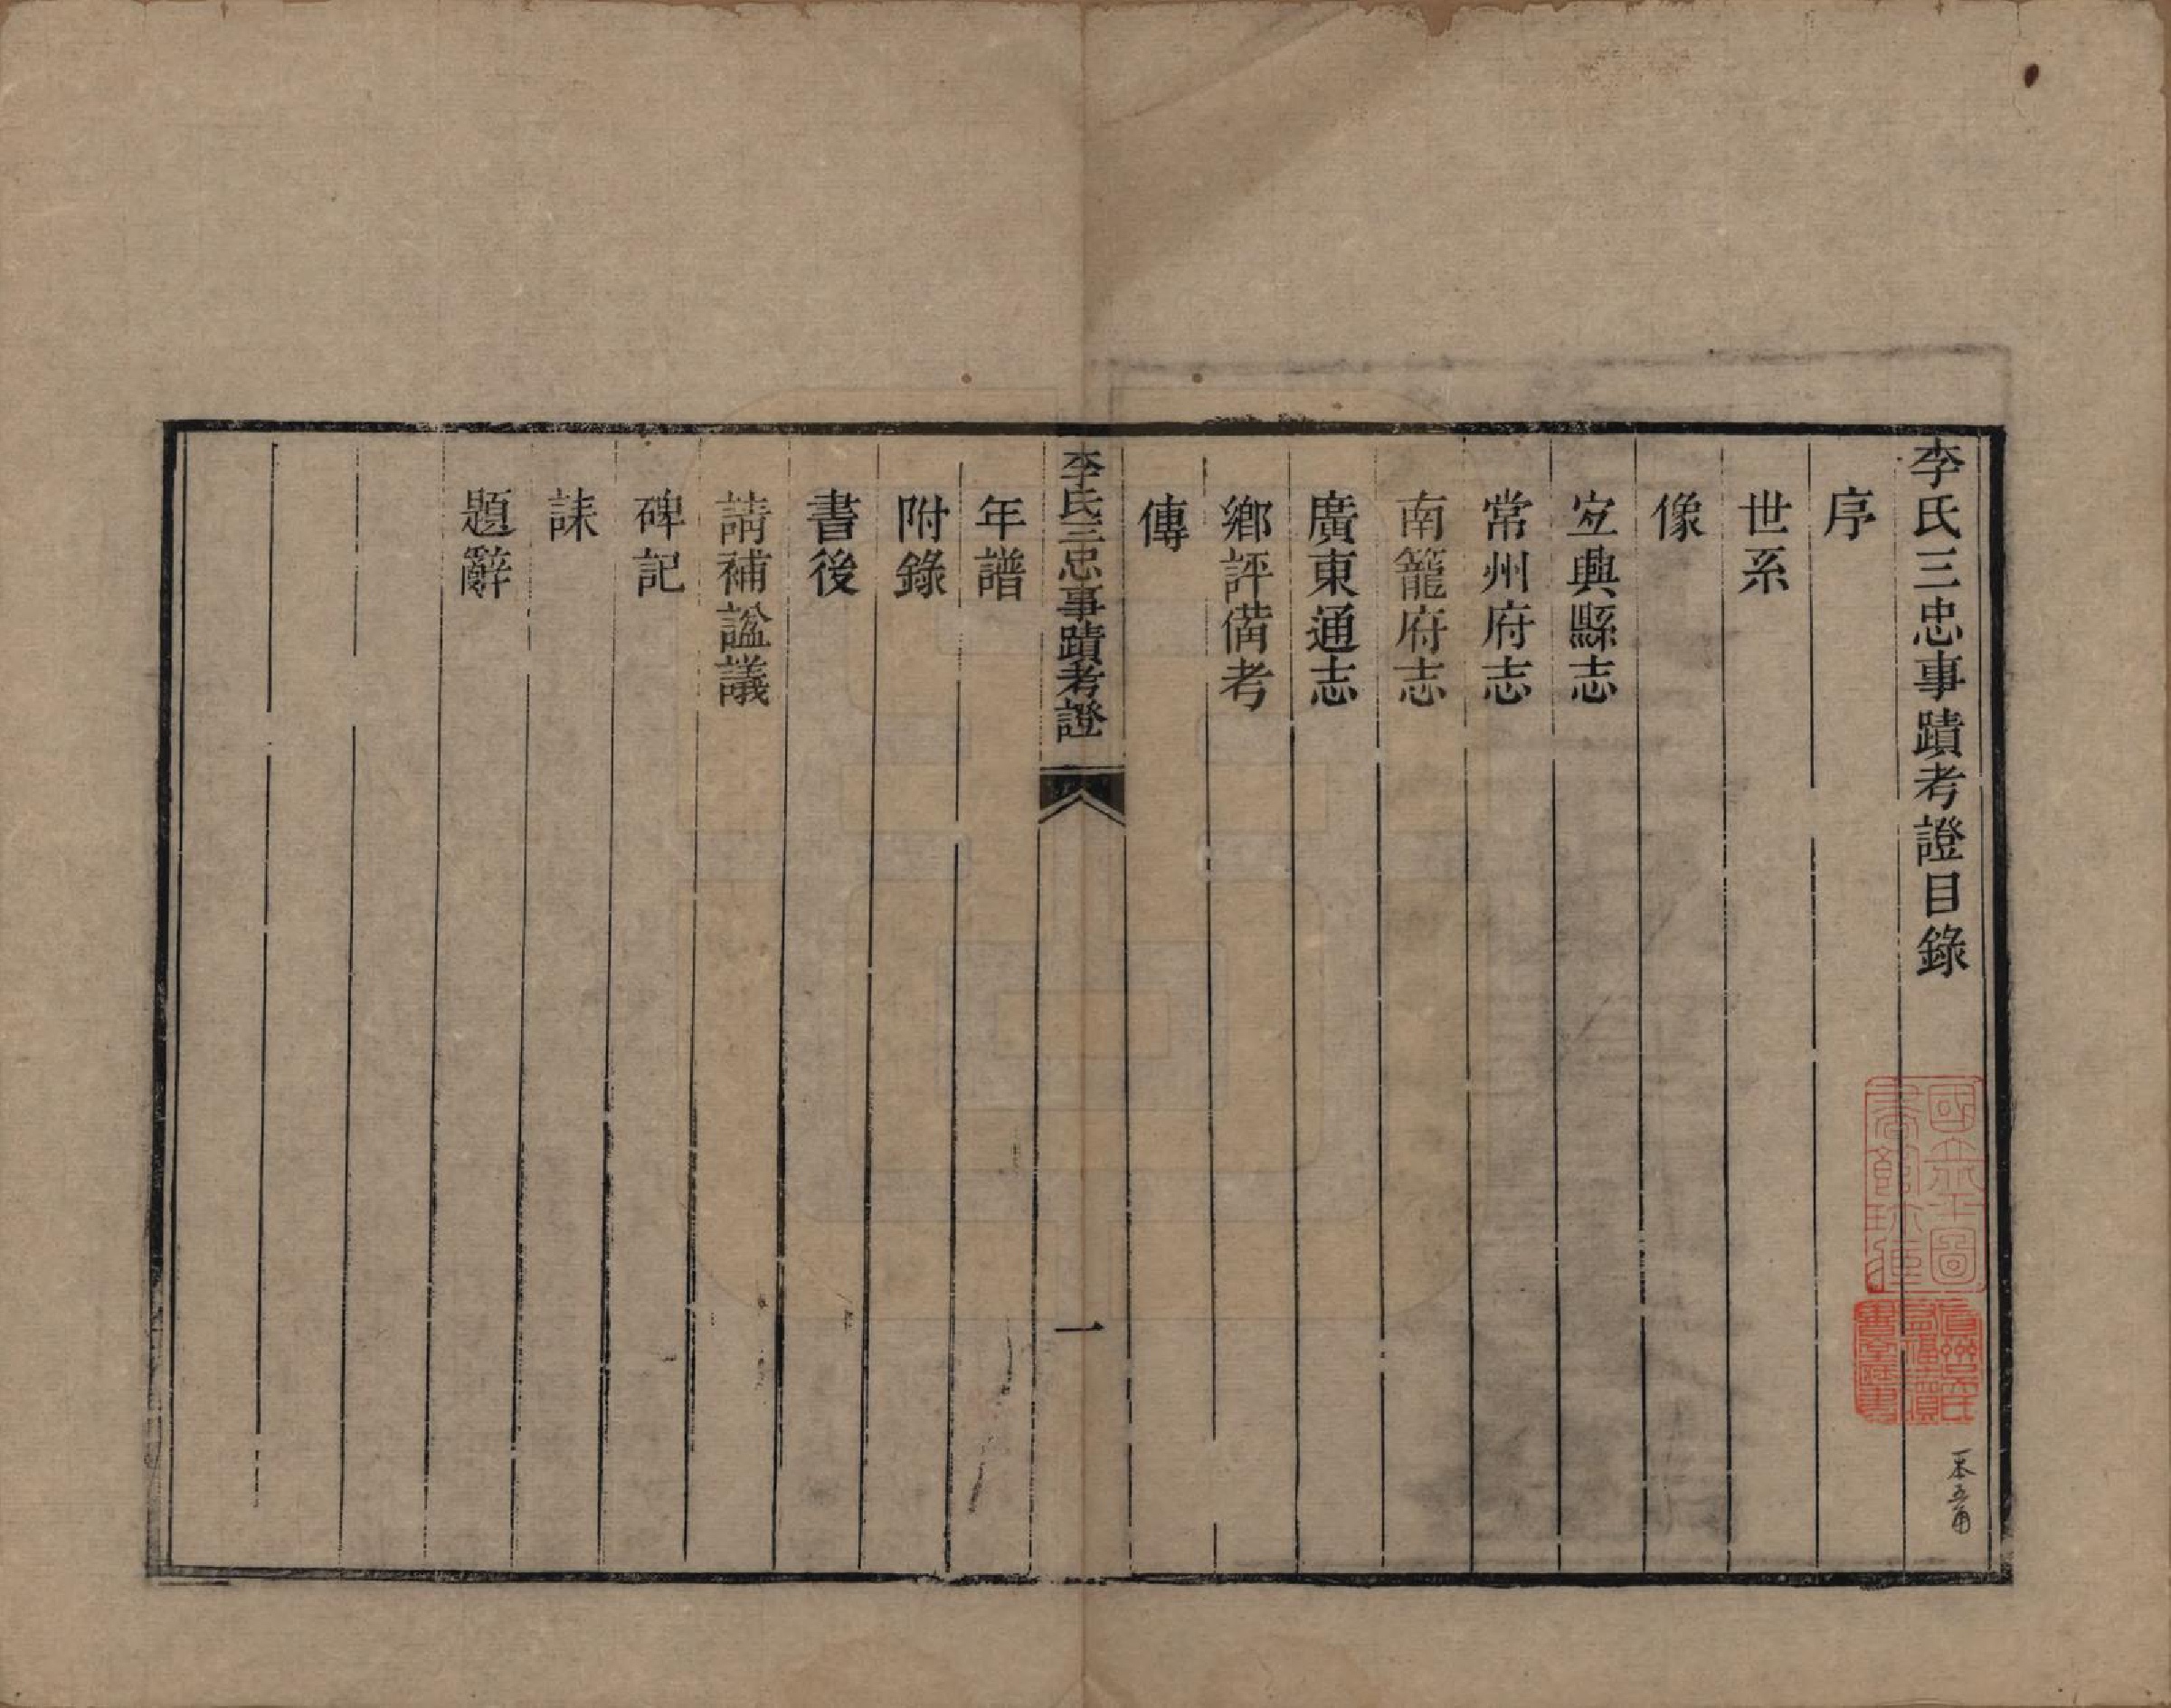 李氏三忠事蹟考證目錄
序
世系
像
宜興縣志
常州府志
南籠府志
廣東通志
鄉評備考
傳
李氏三忠事蹟考證
一
年譜
附錄
書後
請補諡議
碑記
誄
題辭
國立北平圖書館珍藏